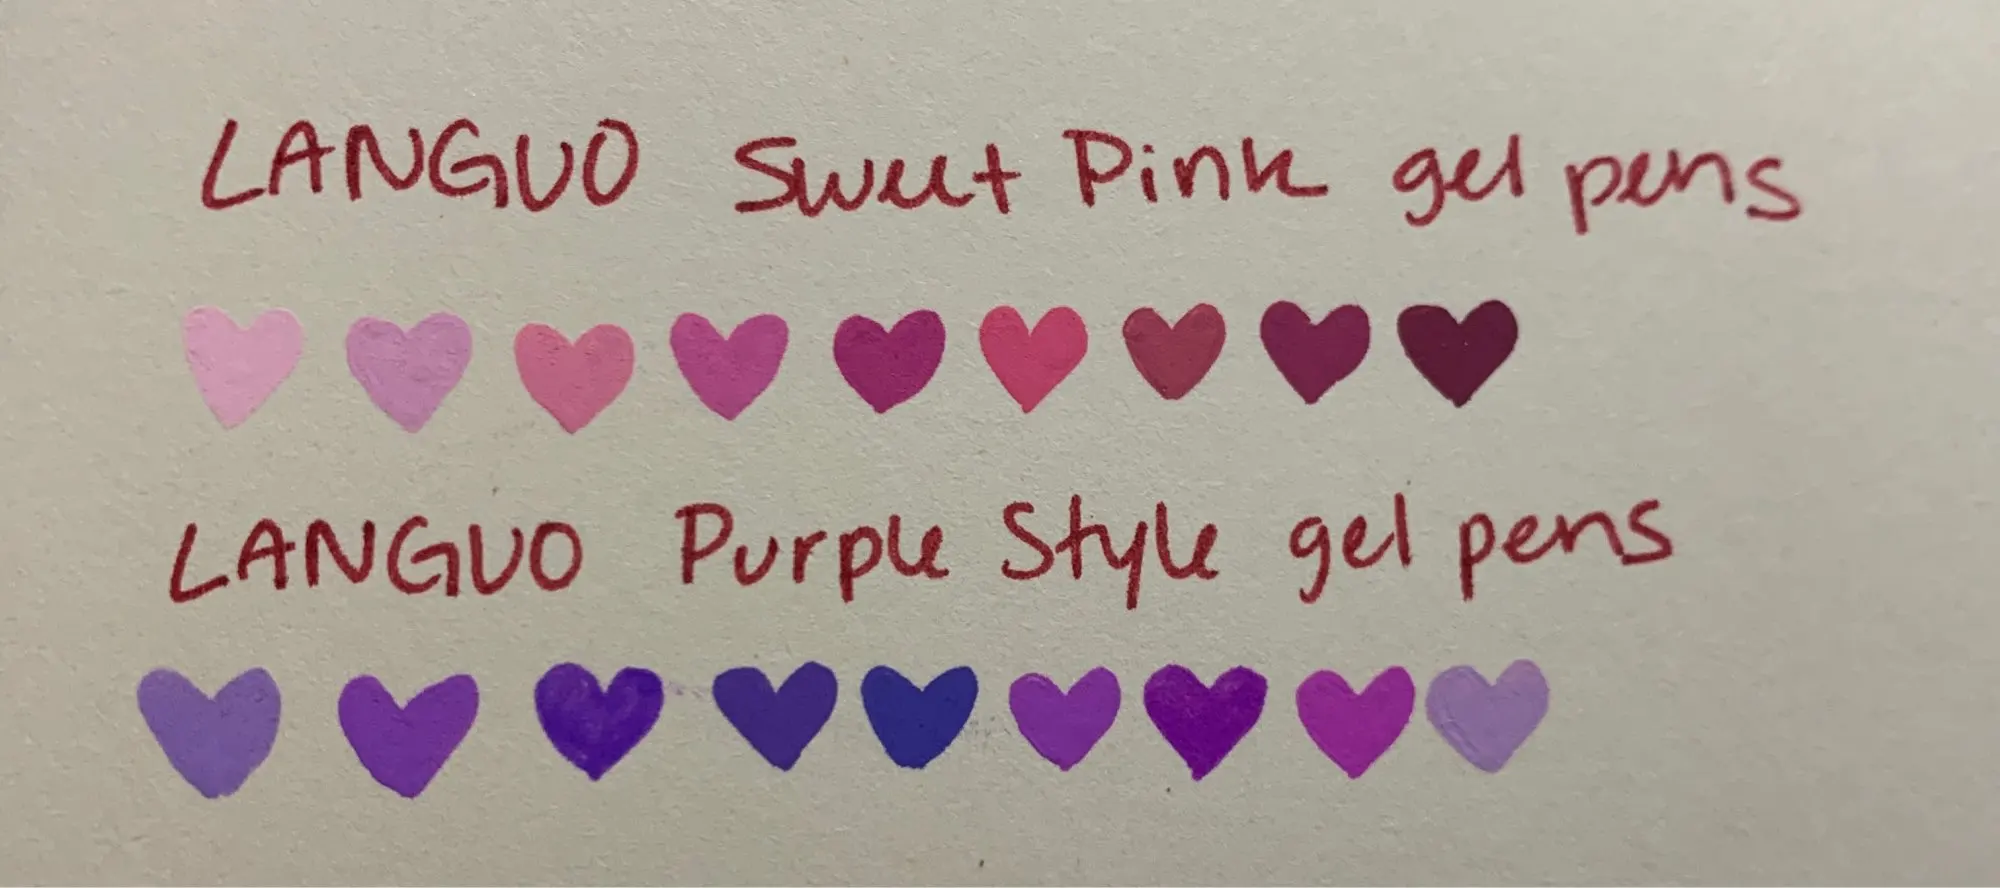 LANGUO Sweet Pink gel pens
LANGUO Purple Style gel pens